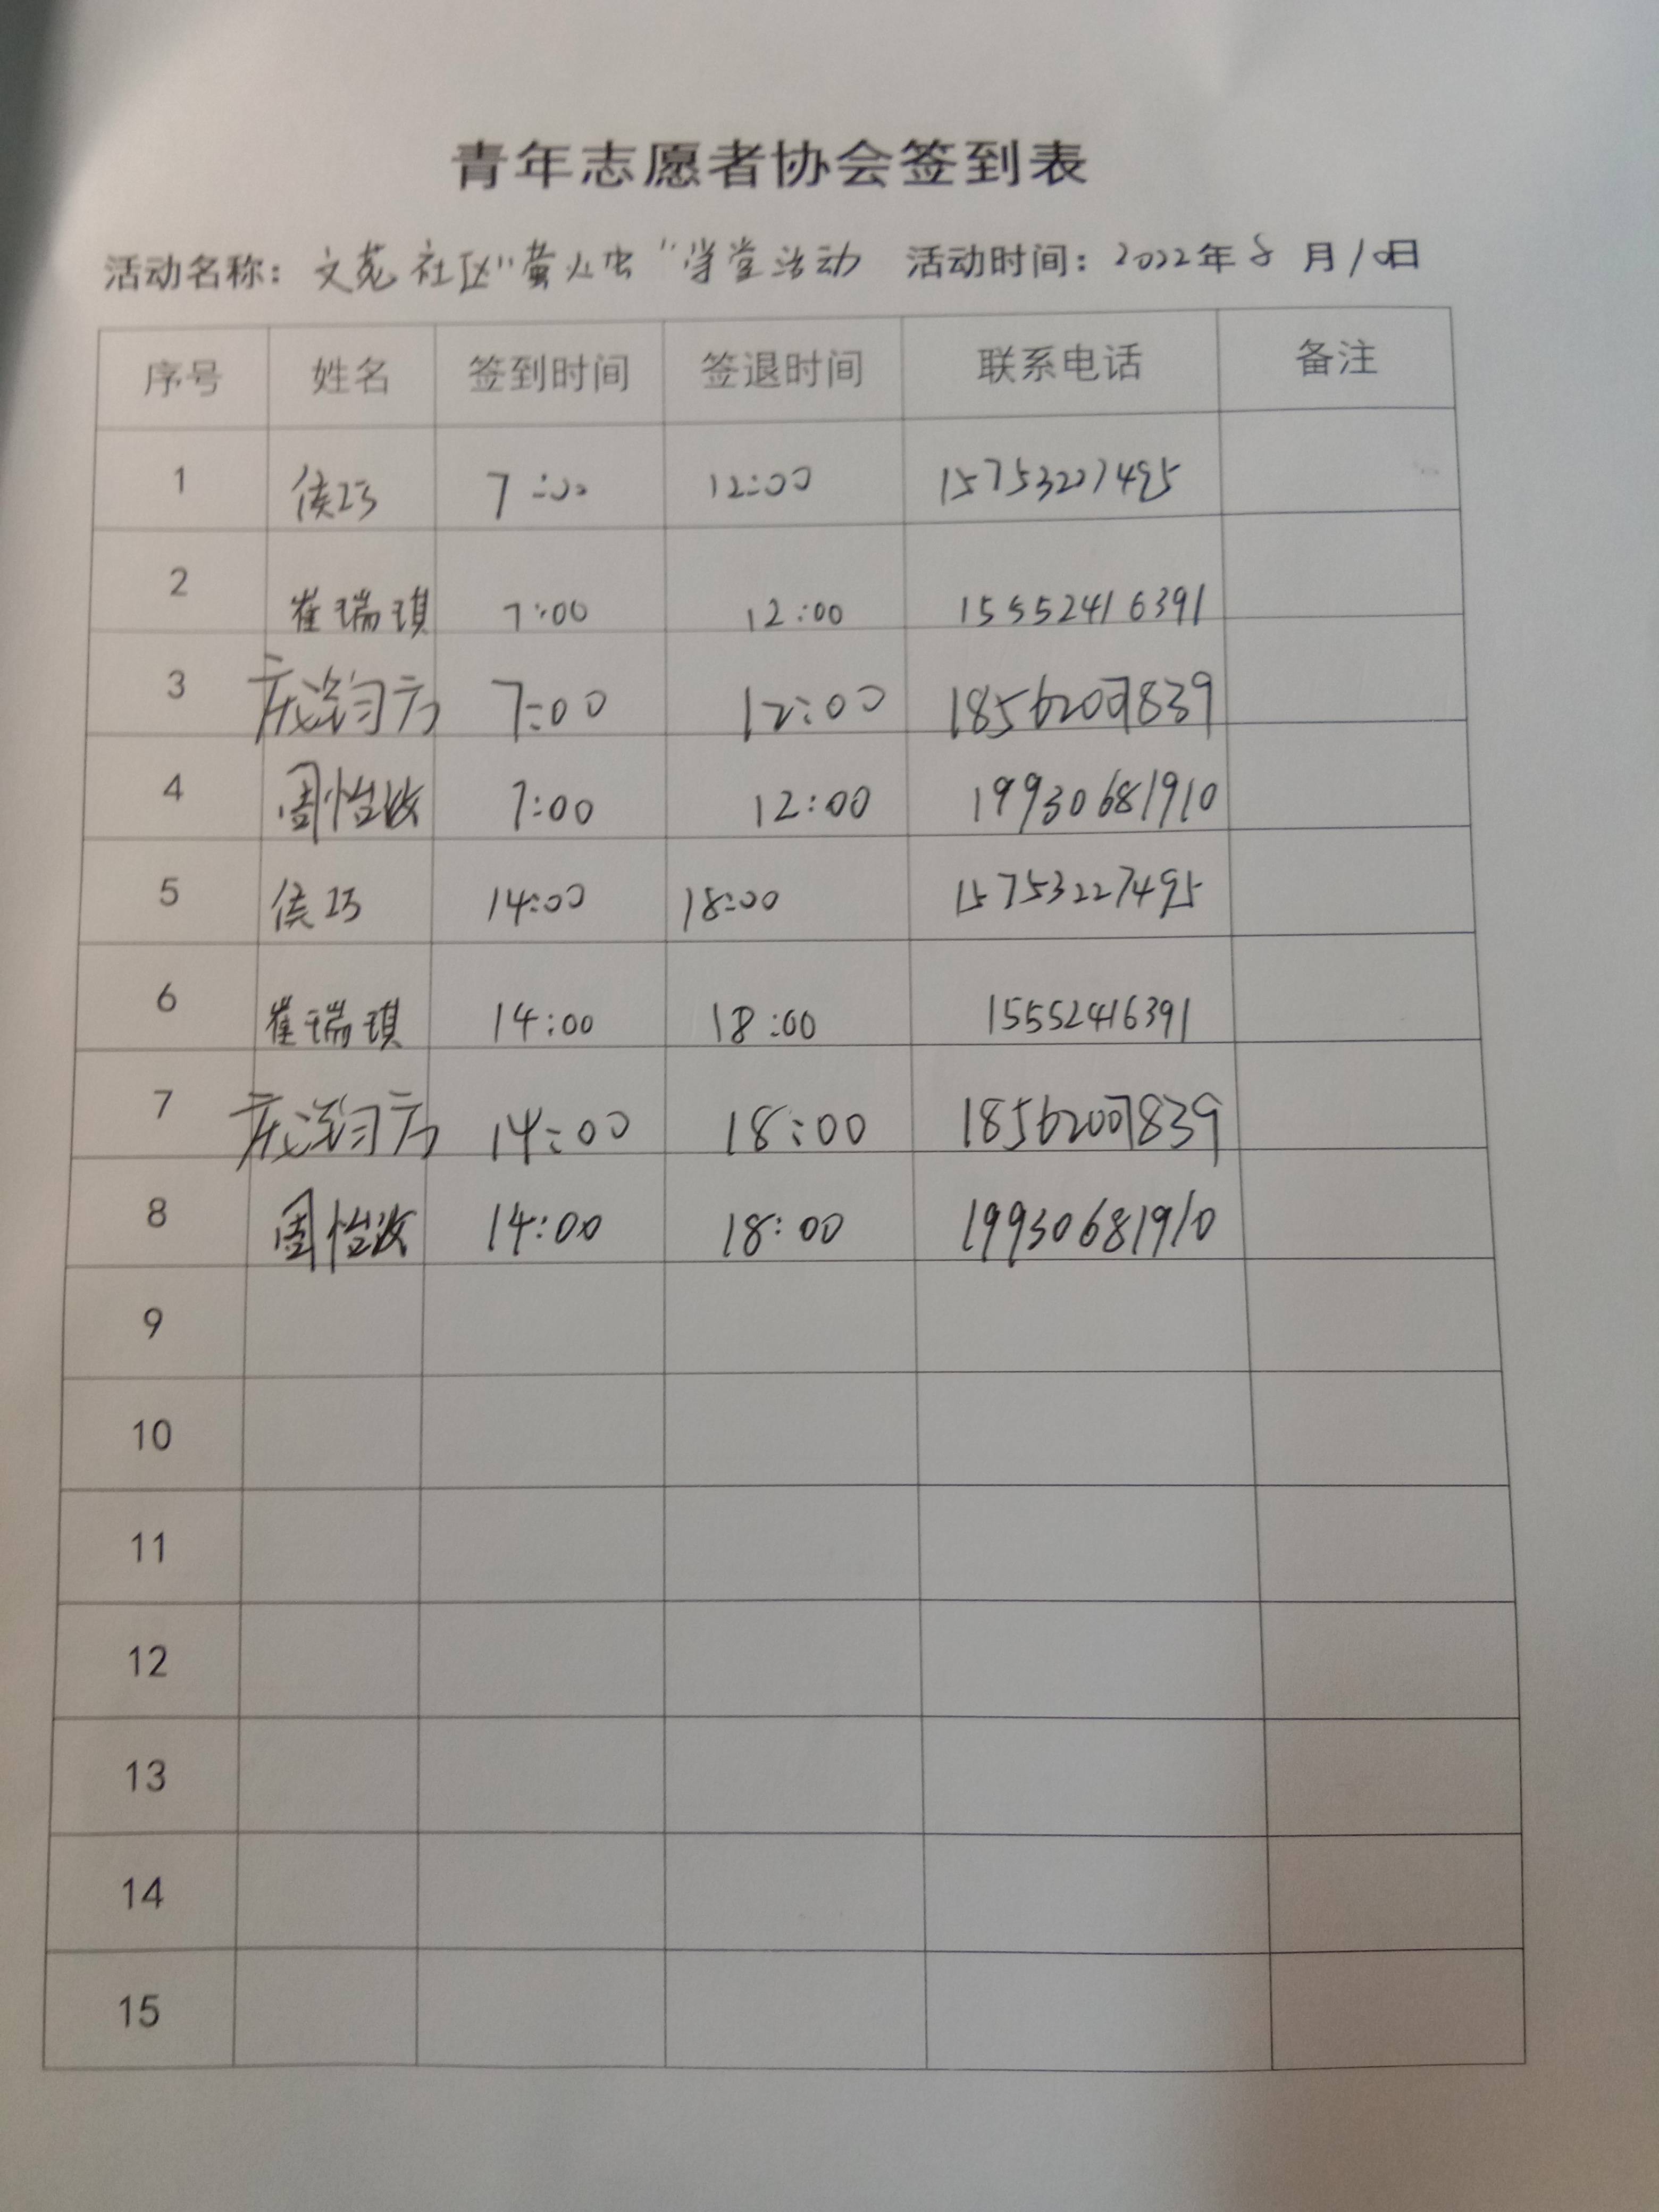 青年志愿者协会签到表
活动名称: 文苑社区"萤火虫"学堂活动 活动时间: 2022年8月10日
序号 姓名 签到时间 签退时间 联系电话 备注
1 侯巧 7:00 12:00 15753227495
2 崔瑞琪 7:00 12:00 15552416391
3 7:00 12:00
4 周怡汝 7:00 12:00 19930681910
5 侯巧 14:00 18:00 15753227495
6 崔瑞琪 14:00 18:00 15552416391
7 14:00 18:00
8 周怡汝 14:00 18:00 19930681910
9
10
11
12
13
14
15